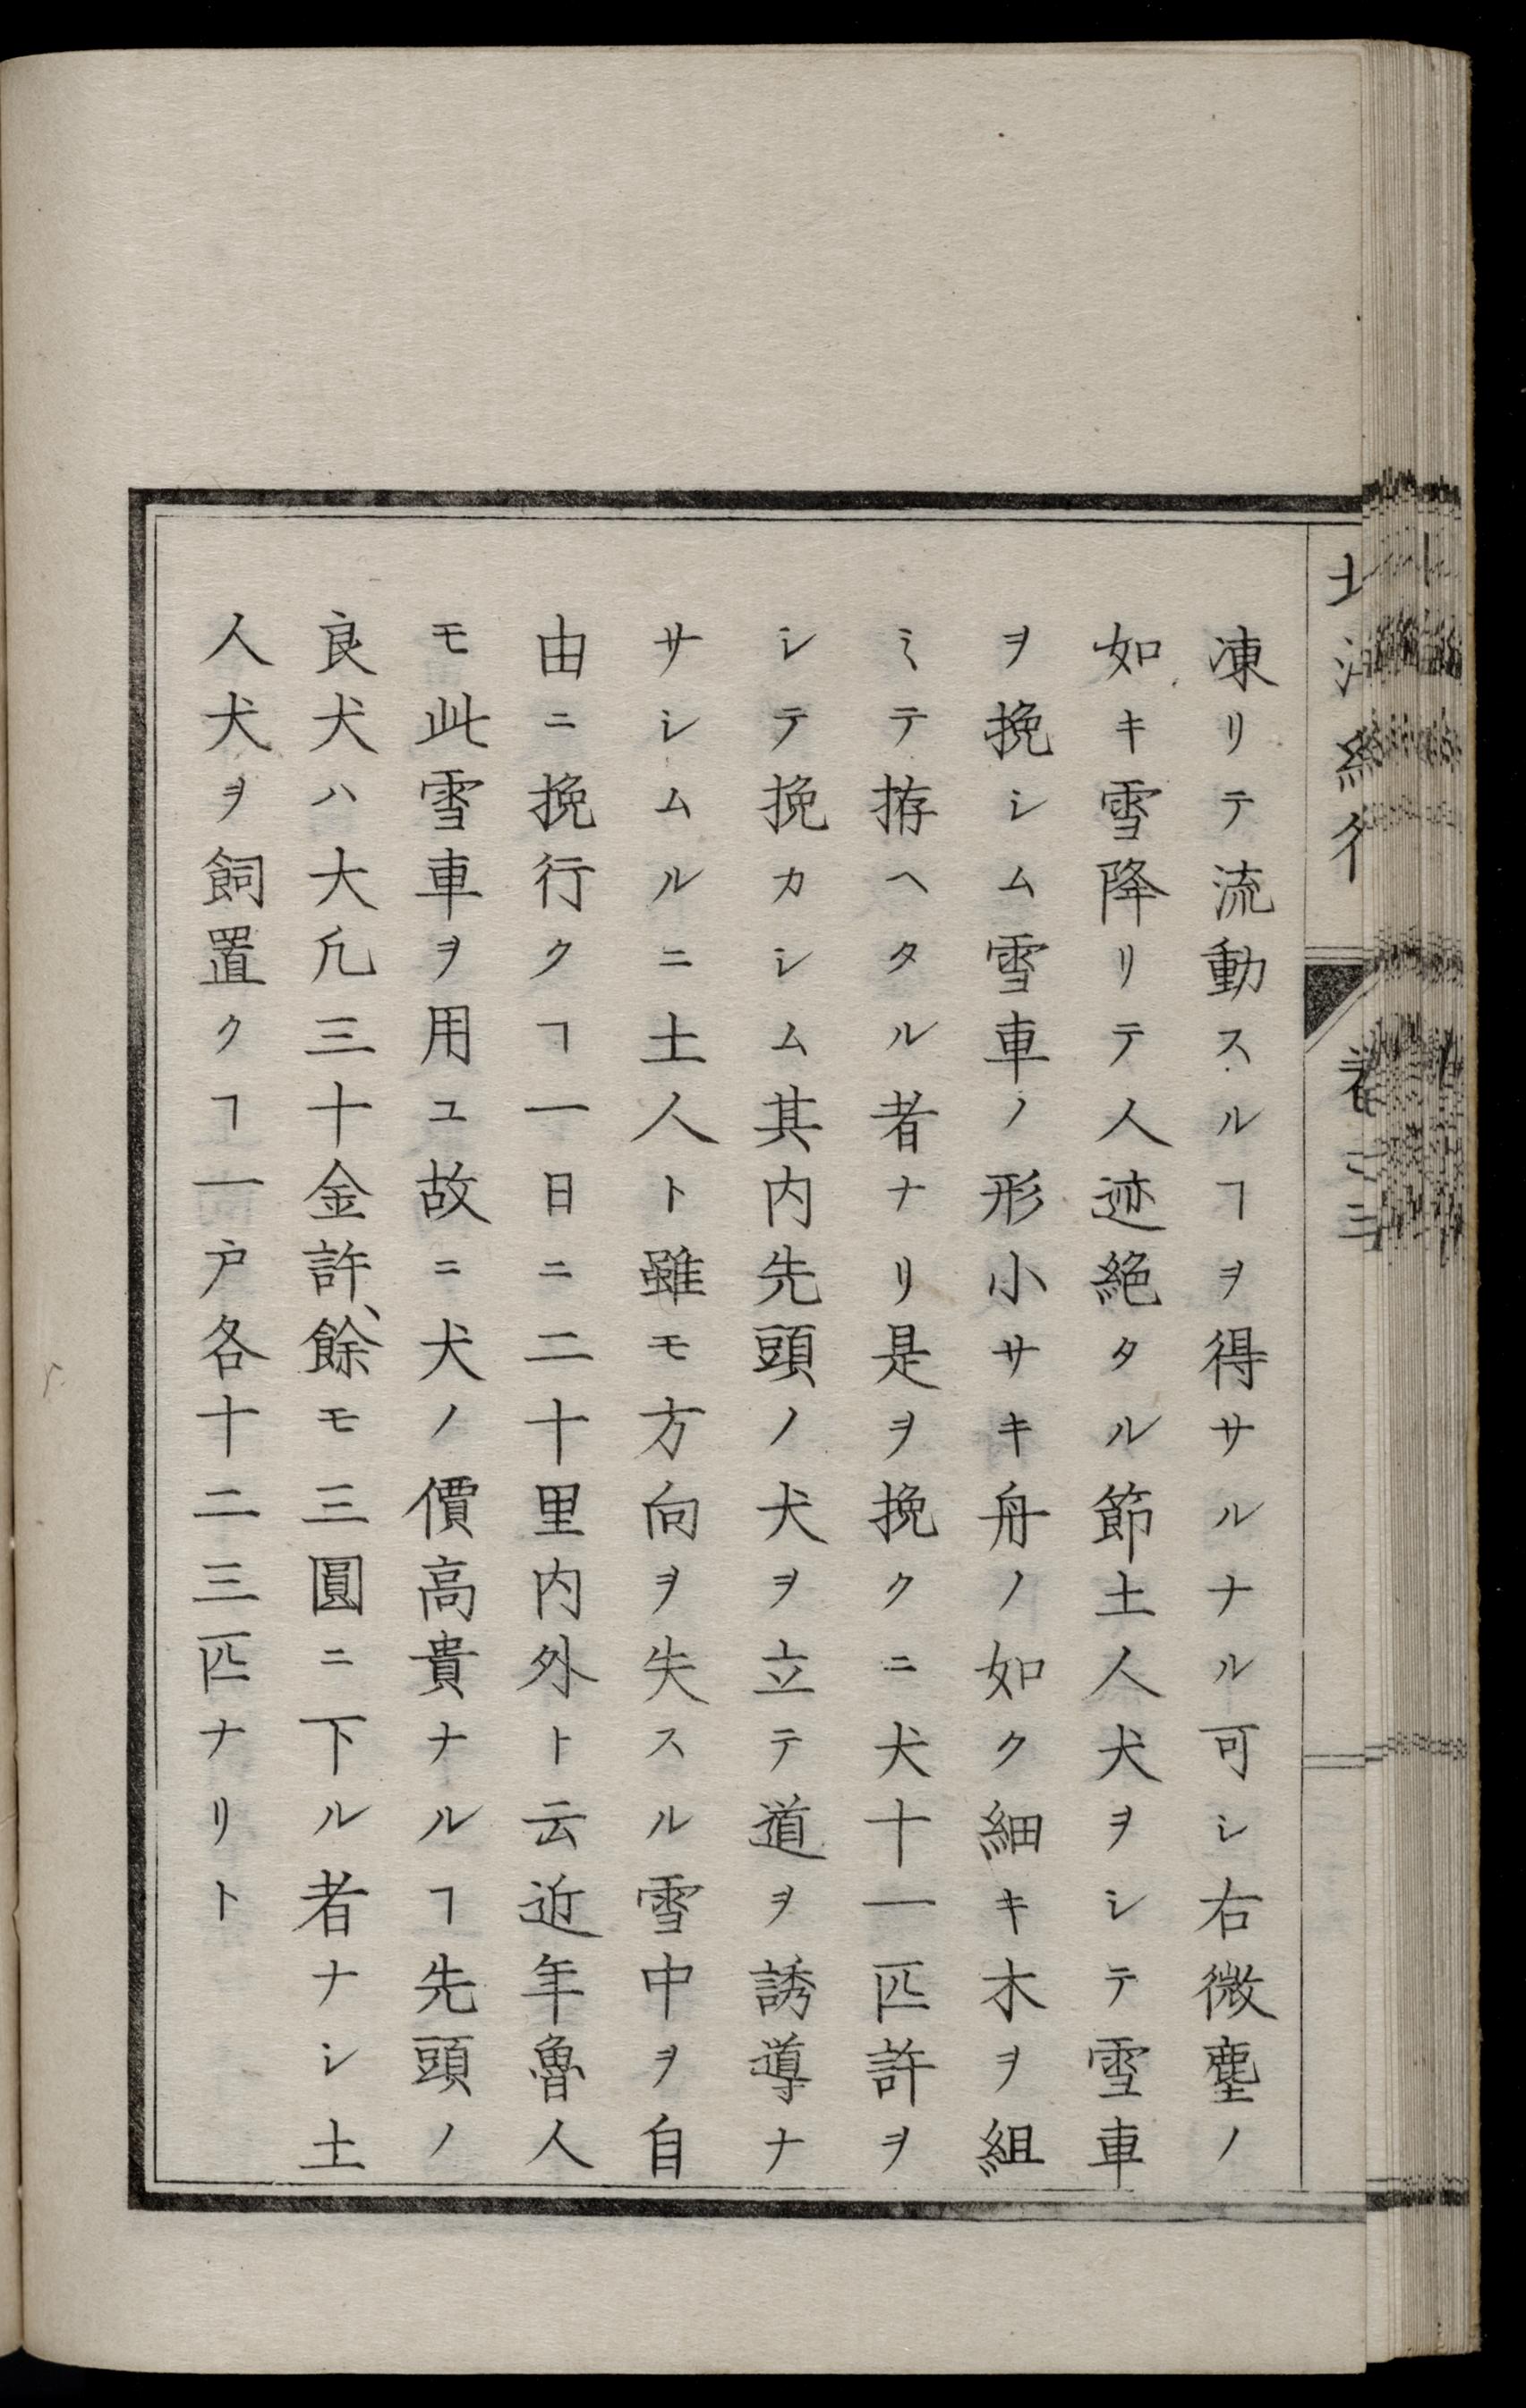 凍リテ流動スルヿヲ得サルナル可シ右微塵ノ
如キ雪降リテ人迹絶タル節土人犬ヲシテ雪車
ヲ挽シム雪車ノ形小サキ舟ノ如ク細キ木ヲ組
ミテ拵ヘタル者ナリ是ヲ挽クニ犬十一匹許ヲ
シテ挽カシム其内先頭ノ犬ヲ立テ道ヲ誘導ナ
サシムルニ土人ト雖モ方向ヲ失スル雪中ヲ自
由ニ挽行クヿ一日ニ二十里内外ト云近年魯人
モ此雪車ヲ用ユ故ニ犬ノ價高貴ナルヿ先頭ノ
良犬ハ大凢三十金許、餘モ三圓ニ下ル者ナシ土
人犬ヲ飼置クヿ一戸各十二三匹ナリト